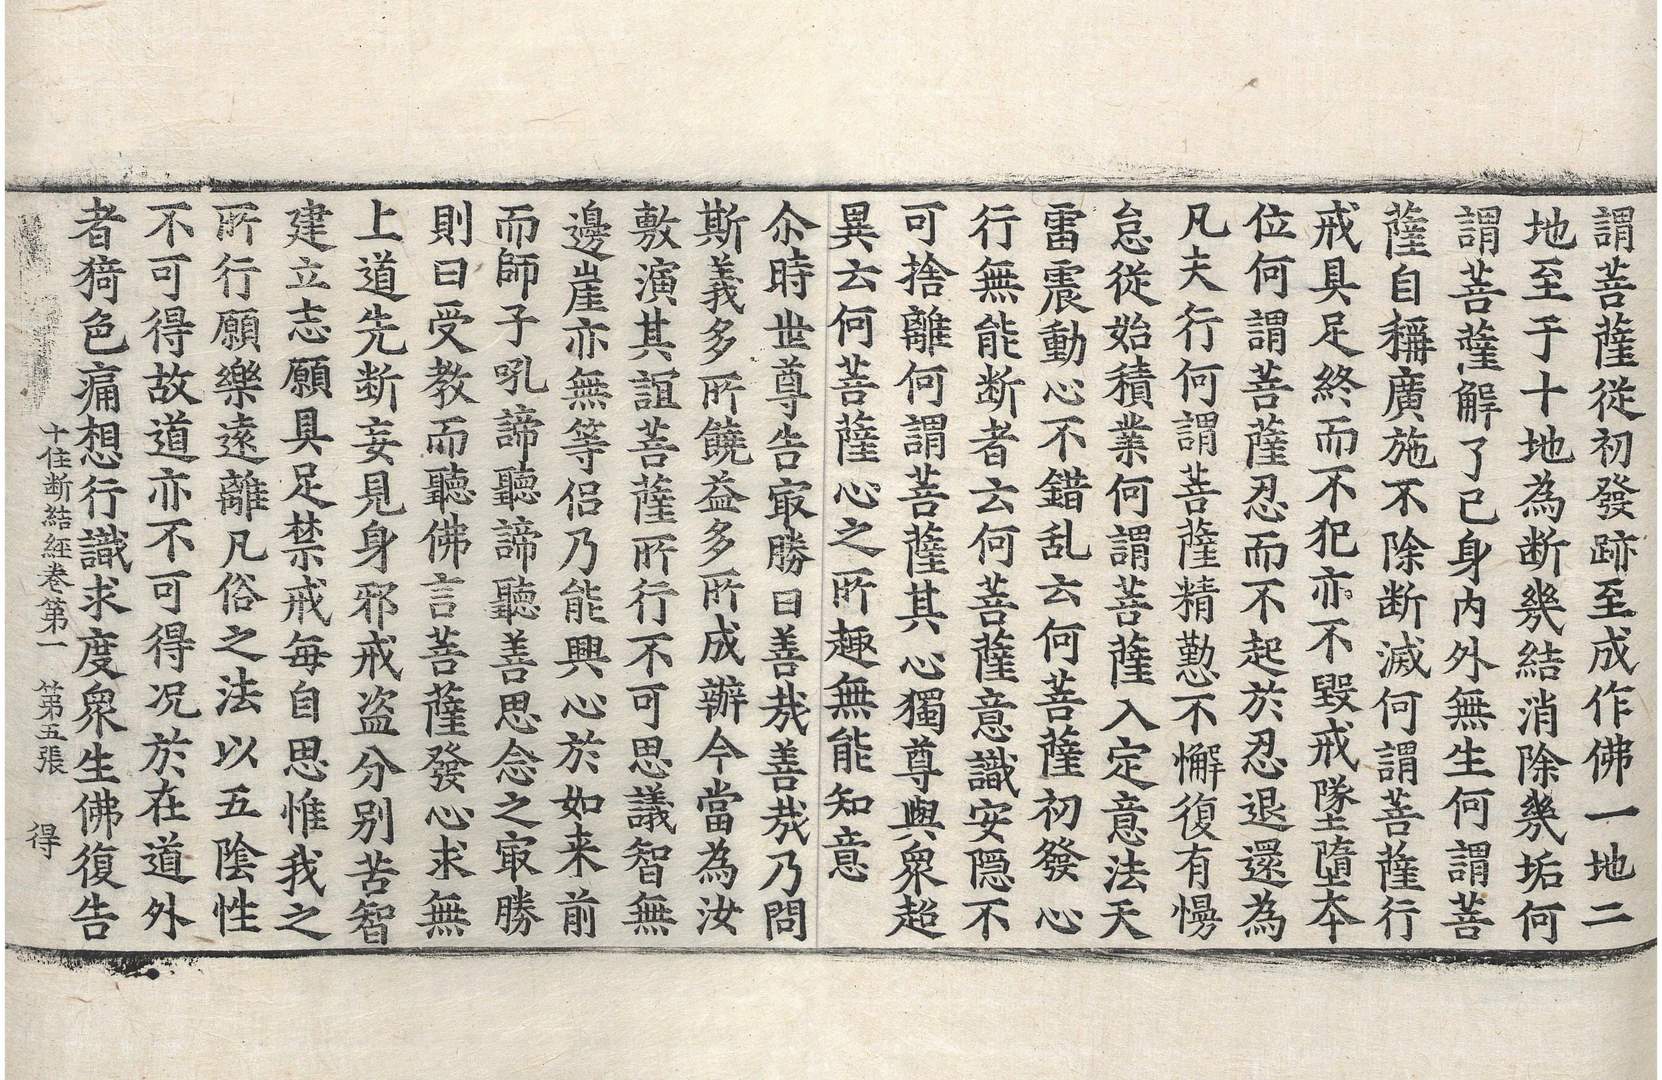 謂菩薩從初發跡至成作佛一地二
地至于十地為断幾結消除幾垢何
謂菩薩解了已身内外無生何謂菩
薩自稱廣施不除断滅何謂菩薩行
戒具足終而不犯亦不毀戒墜墮夲
位何謂菩薩忍而不起於忍退還為
凡夫行何謂菩薩精勤不懈復有慢
怠從始積業何謂菩薩入定意法天
雷震動心不錯乱云何菩薩初發心
行無能断者云何菩薩意識安隠不
可捨離何謂菩薩其心獨尊與衆超
異云何菩薩心之所趣無能知意
尒時世尊告㝡勝曰善㢤善㢤乃問
斯義多所饒益多所成辦今當為汝
敷演其誼菩薩所行不可思議智無
邊崖亦無等侣乃能興心於如来前
而師子吼諦聽諦聽善思念之㝡勝
則曰受教而聽佛言菩薩發心求無
上道先断妄見身邪戒盗分别苦智
建立志願具足禁戒每自思惟我之
所行願樂遠離凡俗之法以五陰性
不可得故道亦不可得况於在道外
者猗色痛想行識求度衆生佛復告
十住断結經卷第一　第五張　得